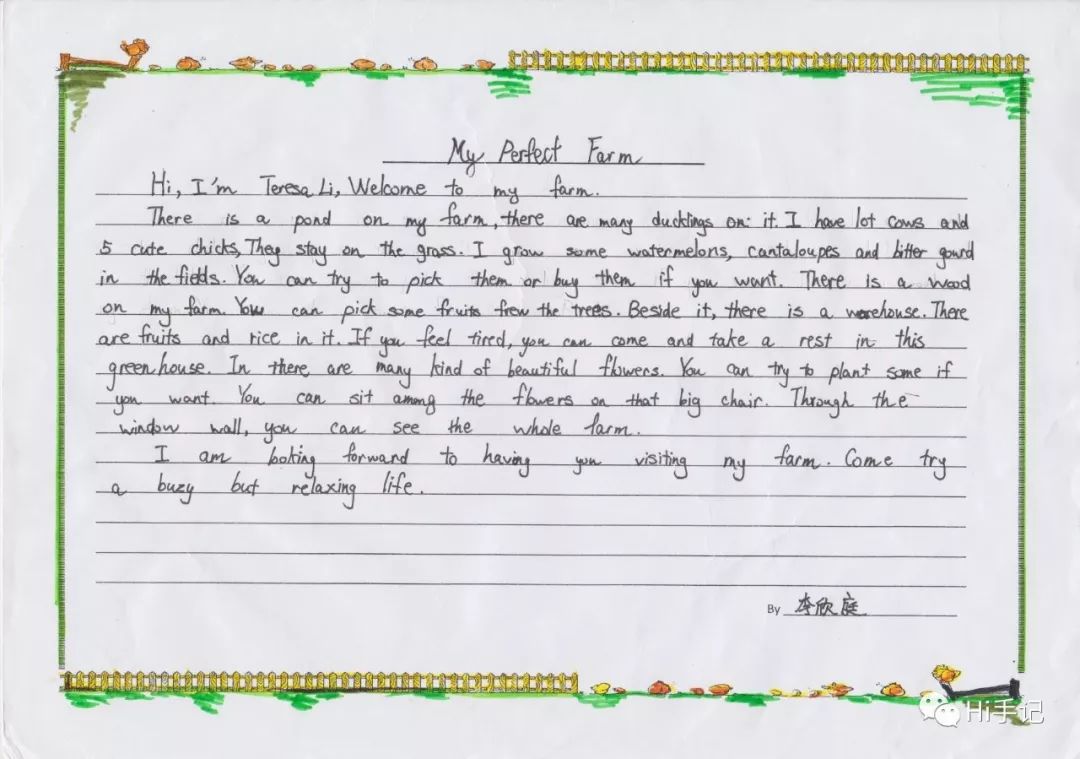 My Perfect Farm
Hi, I'm Teresa Li, Welcome to my farm.
There is a pond on my farm, there are many ducklings on it. I have lot cows and
5 cute chicks, They stay on the grass. I grow some watermelons, cantaloupes and bitter gourd
in the fields. You can try to pick them or buy them if you want. There is a wood
on my farm. You can pick some fruits frew the trees. Beside it, there is a warehouse. There
are fruits and rice in it. If you feel tired, you can come and take a rest in this
greenhouse. In there are many kind of beautiful flowers. You can try to plant some if
you want. You can sit among the flowers on that big chair. Through the
window wall, you can see the whole farm.
I am looking forward to having you visiting my farm. Come try
a buzy but relaxing life.
By 李欣庭
Hi手记